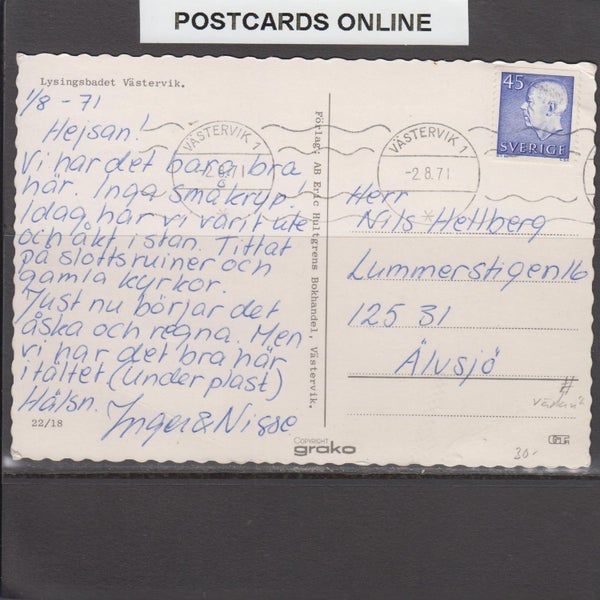 POSTCARDS ONLINE
Lysingsbadet Västervik.
1/8 - 71
Hejsan!
Vi har det bara bra
här. Inga småkryp!
Idag har vi varit ute
och åkt i stan. Tittat
på slottsruiner och
gamla kyrkor.
Just nu börjar det
åska och regna. Men
vi har det bra här
i tältet (under plast)
Hälsn. Inger & Nisse
22/18
Förlag: AB Eric Hultgrens Bokhandel, Västervik.
COPYRIGHT
grako
VÄSTERVIK 1
-2.8.71
VÄSTERVIK 1
-2.8.71
45
SVERIGE
Herr
Nils Hellberg
Lummerstigen 16
125 31
Älvsjö
30:-